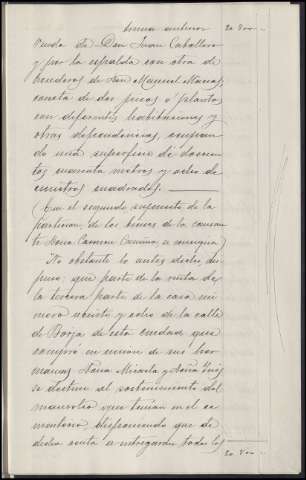 Suma anterior 20 800
viuda de Don Juan Caballero
y por la espalda con otra de
herederos de Don Manuel Macías,
consta de dos pisos ó plantas
con diferentes habitaciones y
otras dependencias, ocupan-
do una superficie de doscien-
tos cuarenta metros y ocho de-
címetros cuadrados.
(En el segundo supuesto de la
particion de los bienes de la causan-
te Doña Carmen se consigna)
No obstante lo antes dicho, dis-
puso: que parte de la renta de
la tercera parte de la casa nú-
mero veinte y ocho de la calle
de Borja de esta ciudad que
compró en union de sus her-
manas Doña Micaela y Doña
se destine al sostenimiento del
mausoleo que tenían en el ce-
menterio, disponiendo que de
dicha renta se entregarán todos los
20 800